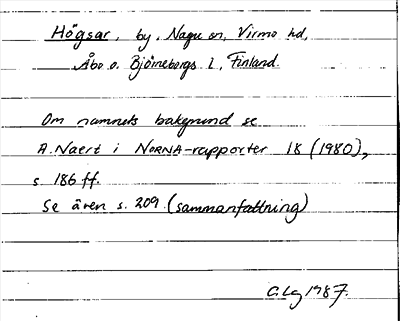 Högsar, by, Nagu sn, Virmo hd,
Åbo o. Björneborgs l, Finland.
Om namnets bakgrund se
A. Naert i NORNA-rapporter 18 (1980),
s. 186 ff.
Se även s. 209 (sammanfattning)
1987.